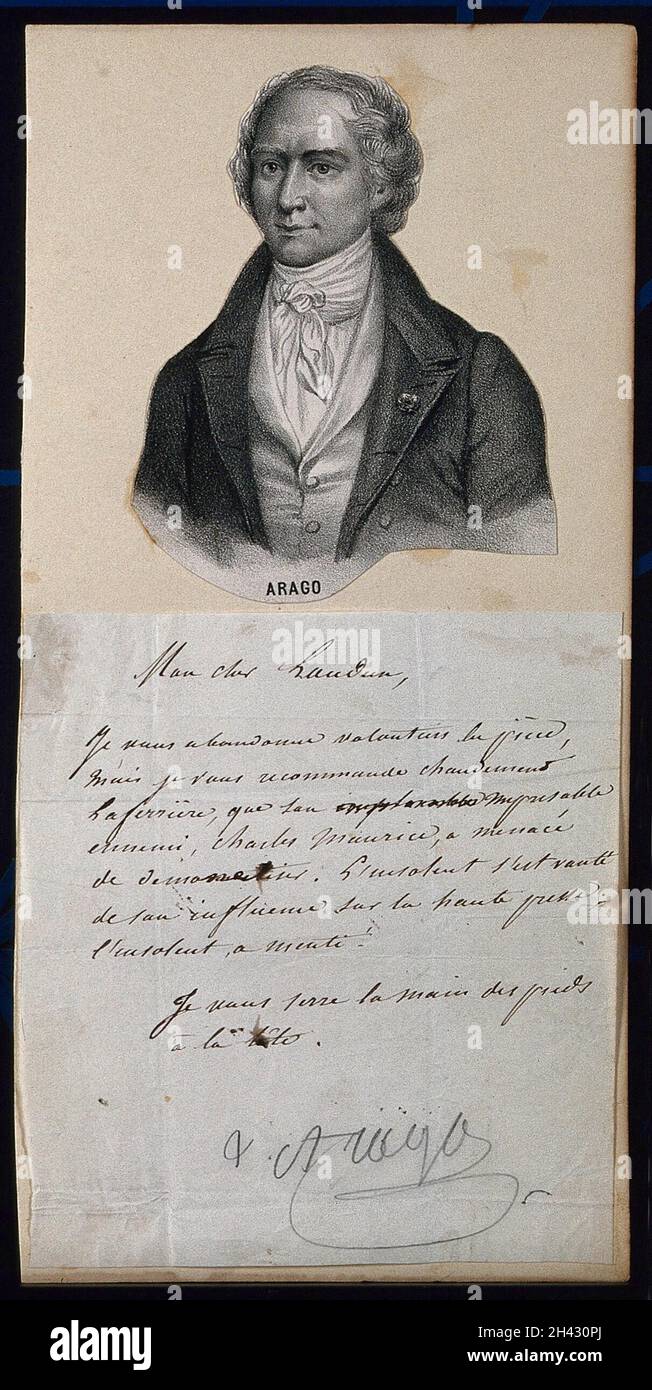 ARAGO
Mon cher Landun,
Je vous abandonne volontiers la pièce,
mais je vous recommande chaudement
Laferrière, que son méprisable
ennemi, Charles Maurice, a menacé
de . L'insolent s'est vanté
de son influence sur la haute presse.
L'insolent, a menti!
Je vous serre la main des pieds
à la tête.
Arago
alamy
Image ID: 2H430PJ
www.alamy.com